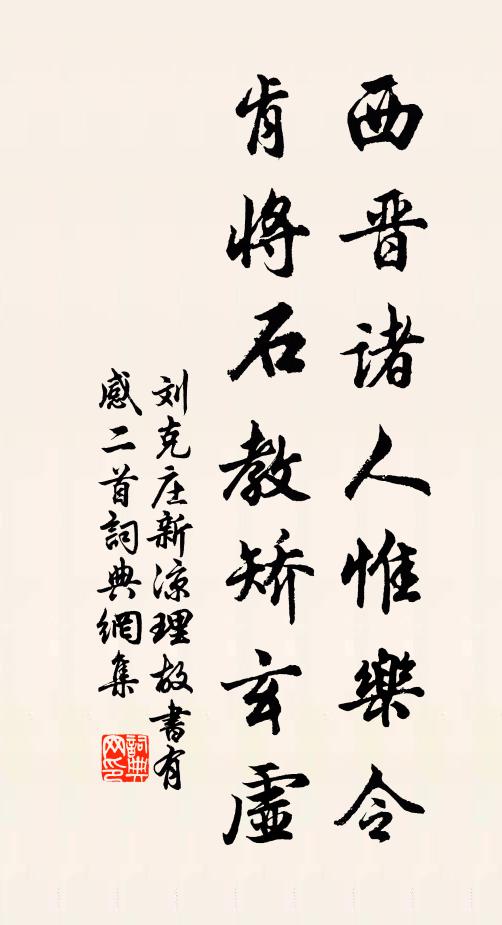 西晋诸人惟樂令
肯將石教矫玄虛
刘克庄新凉理故書有
感二首詞典網集
詞典网印